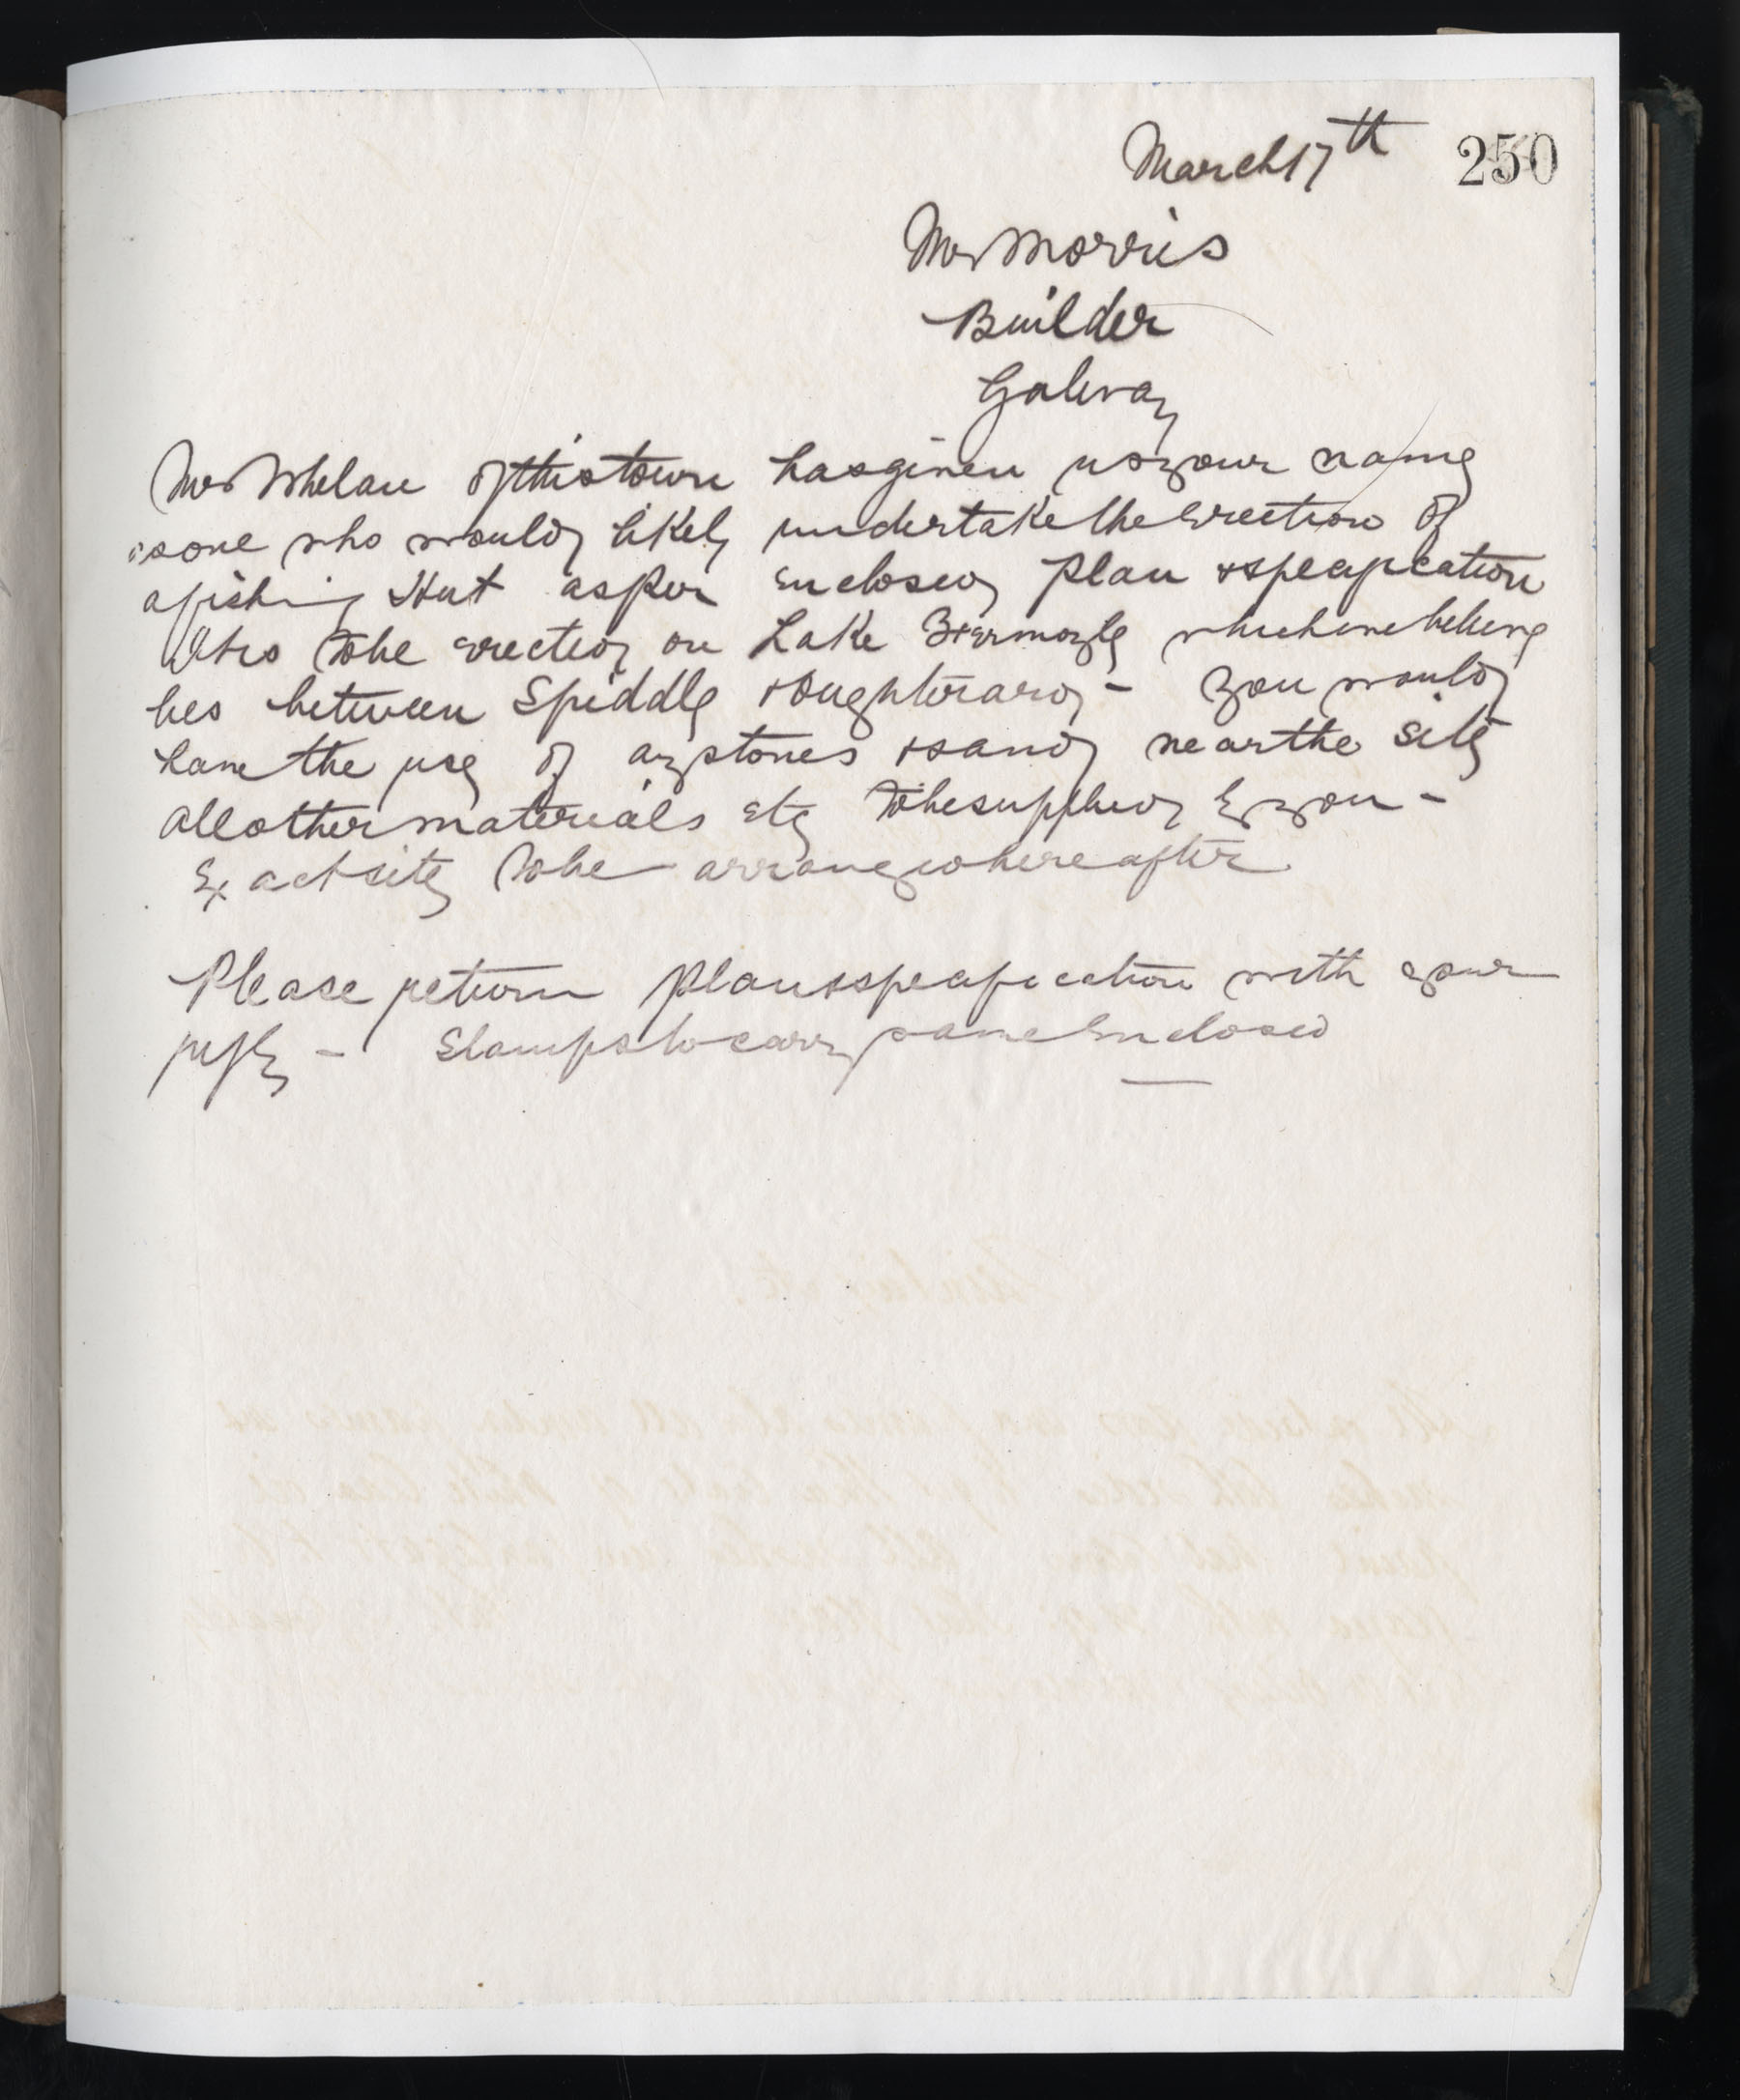 March 17th 250
Mr Morris
Builder
Galway
Mr Whelan of this town has given us your name
as one who would likely undertake the erection of
a fishing Hut as per enclosed plan & specification
It is to be erected on Lake which we believe
lies between Spiddle & Oughterard - You would
have the use of any stones & sand near the site
all other materials etc to be supplied by you -
Exact site to be arranged hereafter
Please return plan & specification with your
reply - Stamps to carry same enclosed